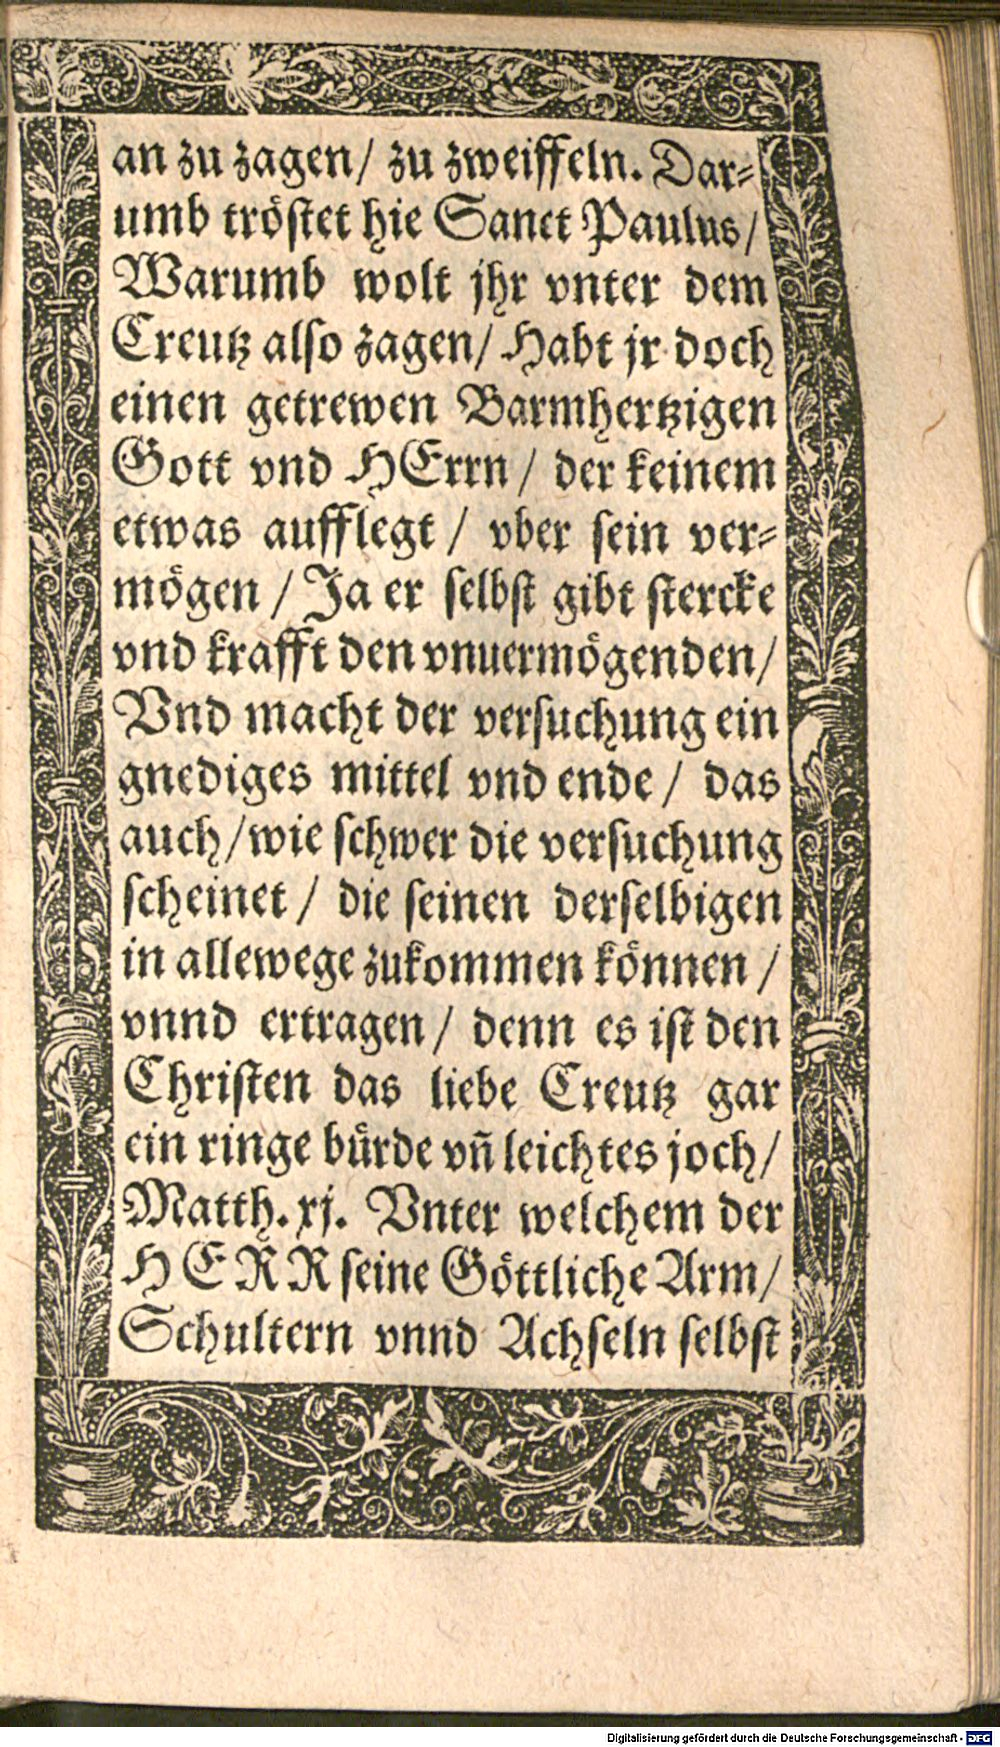 an zu zagen/ zu zweiffeln. Dar⸗
umb tröstet hie Sanct Paulus/
Warumb wolt jhr vnter dem
Creutz also zagen/ Habt jr doch
einen getrewen Barmhertzigen
Gott vnd HErrn/ der keinem
etwas aufflegt/ vber sein ver⸗
mögen/ Ja er selbst gibt stercke
vnd krafft den vnuermögenden/
Vnd macht der versuchung ein
gnediges mittel vnd ende/ das
auch/ wie schwer die versuchung
scheinet/ die seinen derselbigen
in allewege zukommen können/
vnnd ertragen/ denn es ist den
Christen das liebe Creutz gar
ein ringe bürde vñ leichtes joch/
Matth. xj. Vnter welchem der
HERR seine Göttliche Arm/
Schultern vnnd Achseln selbst
Digitalisierung gefördert durch die Deutsche Forschungsgemeinschaft - DFG